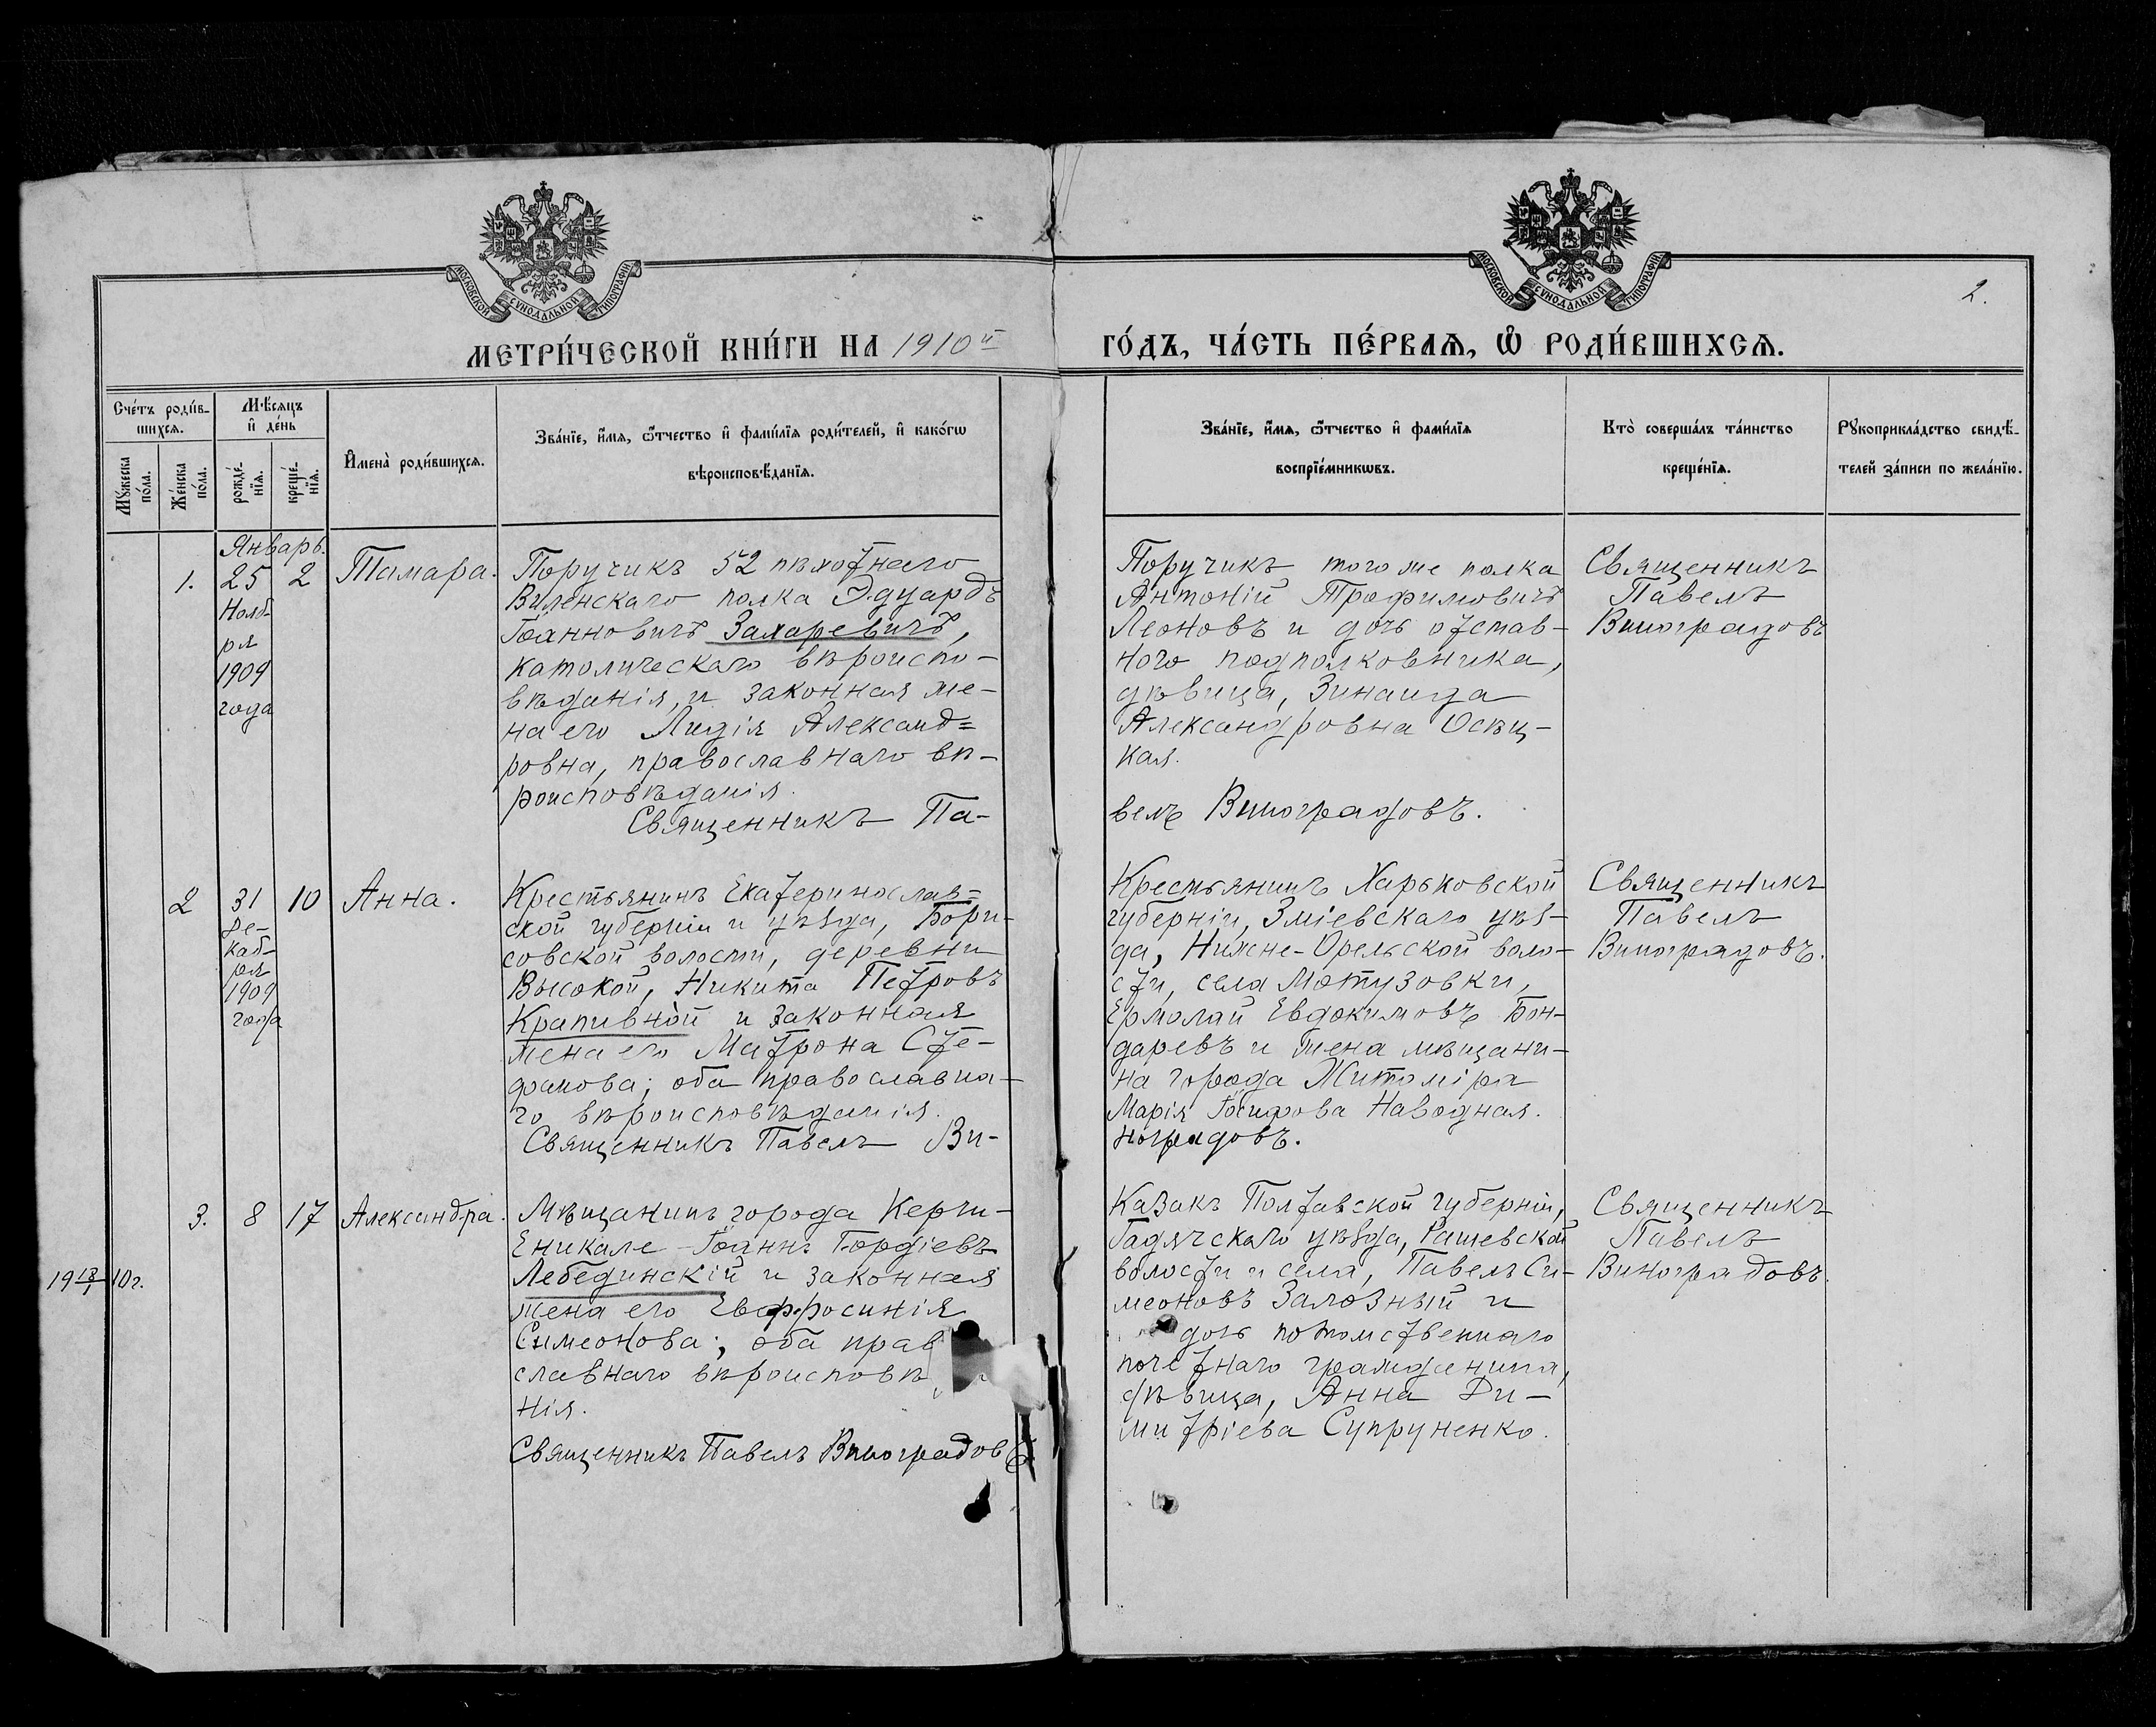 МОСКОВСКОЙ СѴНОДАЛЬНОЙ ТИПОГРАФІИ
МОСКОВСКОЙ СѴНОДАЛЬНОЙ ТИПОГРАФІИ
2.
МЕТРИ́ЧЕСКОЙ КНИ́ГИ НА 1910й
ГО́ДЪ, ЧА́СТЬ ПЕ́РВАѦ, Ѡ҆ РОДИ́ВШИХСѦ.
Сче́тъ роди́в-
шихсѧ.
Мꙋ́жеска по́ла.
Же́нска по́ла.
Мѣ́сѧцъ
и҆ де́нь
рожде́-
нїѧ.
креще́-
нїѧ.
И҆мена̀ роди́вшихсѧ.
Зва́нїе, и҆́мѧ, ѻ҆́тчество и҆ фами́лїѧ роди́телей, и҆ како́гѡ
вѣроисповѣ́данїѧ.
Зва́нїе, и҆́мѧ, ѻ҆́тчество и҆ фами́лїѧ
воспрїе́мникѡвъ.
Кто̀ соверша́лъ та́инство
креще́нїѧ.
Рꙋкоприкла́дство свидѣ́-
телей за́писи по жела́нїю.
Январь.
1. 25 2 Тамара.
Нояб-
ря
1909
года
Поручикъ 52 пѣхотнаго
Виленскаго полка Эдуардъ
Іоанновичъ Захаревичъ,
католическаго вѣроиспо-
вѣданія, и законная же-
на его Лидія Александ=
ровна, православнаго вѣ-
роисповѣданія.
Священникъ Па-
Поручикъ того же полка
Антоній Трофимовичъ
Леоновъ и дочь отстав-
ного подполковника,
дѣвица, Зинаида
Александровна Осѣц-
кая.
велъ Виноградовъ.
Священникъ
Павелъ
Виноградовъ
2 31 10 Анна.
Де-
каб-
ря
1909
года
Крестьянинъ Екатеринослав=
ской губерніи и уѣзда, Бори-
совской волости, деревни
Высокой, Никита Петровъ
Крапивной и законная
жена его Матрона Сте-
фанова; оба православна-
го вѣроисповѣданія.
Священникъ Павелъ Ви-
Крестьянинъ Харьковской
губерніи, Зміевскаго уѣз-
да, Нижне-Орельской воло-
сти, села Мотузовки,
Ермолай Евдокимовъ Бон-
даревъ и жена мѣщани-
на города Житоміра
Марія Іосифова Наводная.
ноградовъ.
Священникъ
Павелъ
Виноградовъ.
3. 8 17 Александра.
19 13/1 10г.
Мѣщанинъ города Керчи-
Еникале Іоаннъ Гордіевъ
Лебединскій и законная
жена его Евффросинія
Симеонова; оба прав
славнаго вѣроисповѣ
нія.
Священникъ Павелъ Виноградовъ
Казакъ Полтавской губерніи,
Гадячскаго уѣзда, Рашевской
волости и села, Павелъ Си-
меоновъ Залозный и
дочь потомственнаго
почетнаго гражданина,
дѣвица, Анна Ди-
митріева Супруненко.
Священникъ
Павелъ
Виноградовъ.